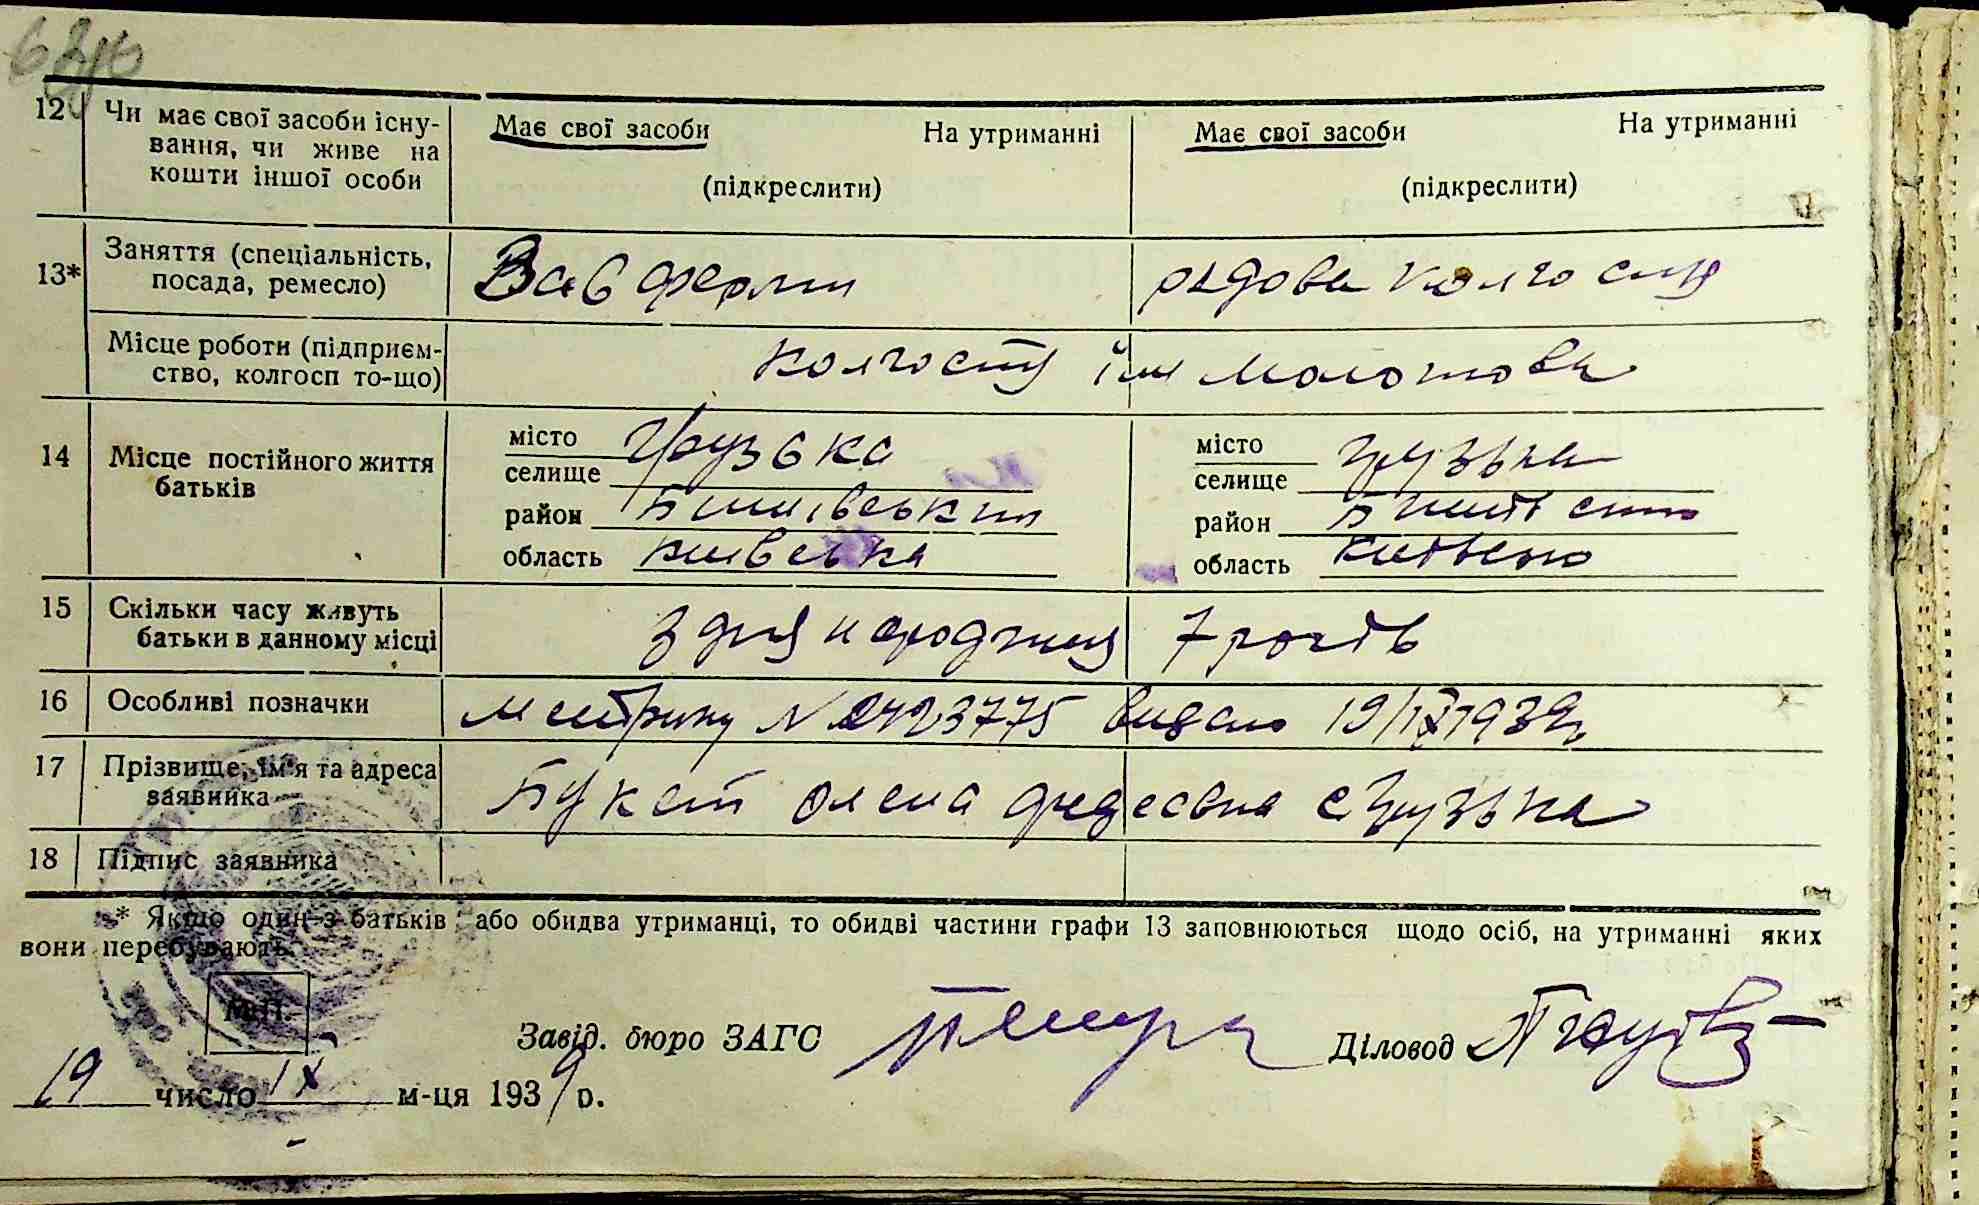 12 Чи має свої засоби існу- Має свої засоби На утриманні Має свої засоби На утриманні
вання, чи живе на
кошти іншої особи (підкреслити) (підкреслити)
13* Заняття (спеціальність, Зав ферми рядова колгоспу
посада, ремесло)
Місце роботи (підприєм- колгоспу їм Молотова
ство, колгосп то-що)
14 Місце постійного життя місто Грузька місто Грузька
батьків селище селище
район Бишівський район
область київська область
15 Скільки часу живуть з дня 7 років
батьки в данному місці
16 Особливі позначки Метрику N 2423775 видано 19/IX 1939р
17 Прізвище, ім'я та адреса Букат Олена с Грузька
заявника
18 Підпис заявника
* Якщо один з батьків або обидва утриманці, то обидві частини графи 13 заповнюються щодо осіб, на утриманні яких
вони перебувають.
М.П.
Завід. бюро ЗАГС Діловод
19 число IX м-ця 1939 р.